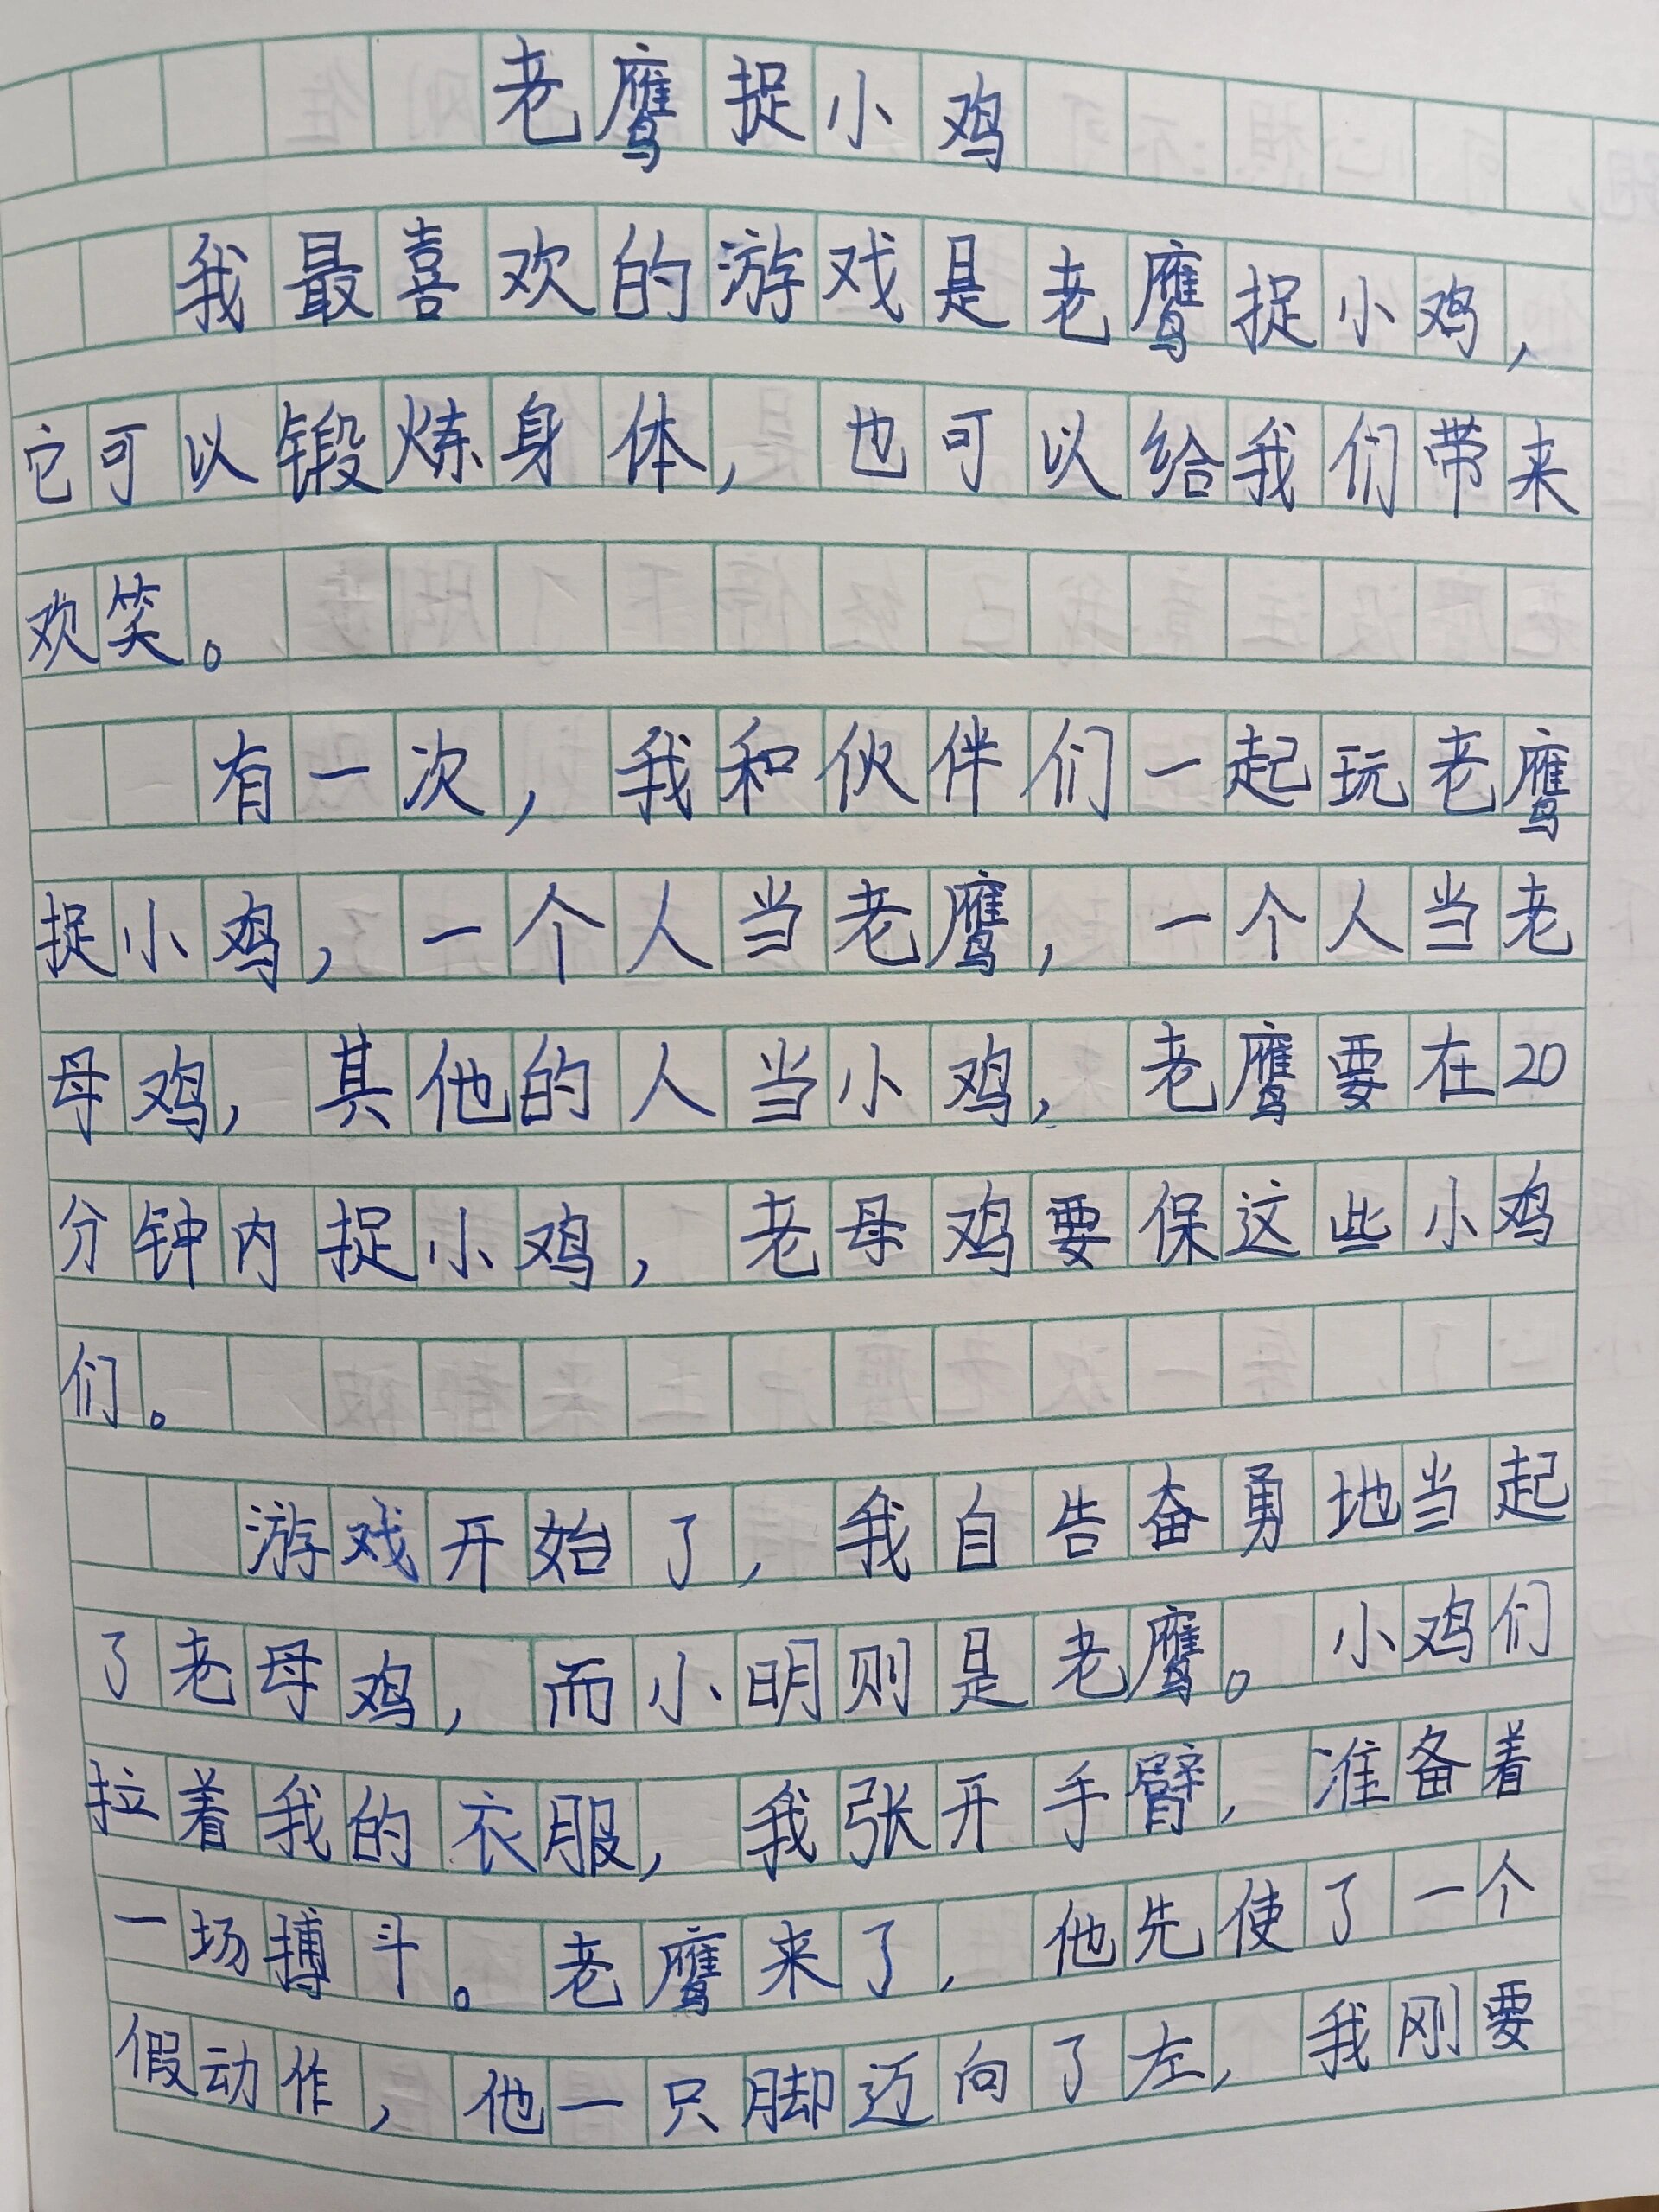 老鹰捉小鸡
我最喜欢的游戏是老鹰捉小鸡,
它可以锻炼身体,也可以给我们带来
欢笑。
有一次,我和伙伴们一起玩老鹰
捉小鸡,一个人当老鹰,一个人当老
母鸡,其他的人当小鸡,老鹰要在20
分钟内捉小鸡,老母鸡要保这些小鸡
们。
游戏开始了,我自告奋勇地当起
了老母鸡,而小明则是老鹰。小鸡们
拉着我的衣服,我张开手臂,准备着
一场搏斗。老鹰来了,他先使了一个
假动作,他一只脚迈向了左,我刚要